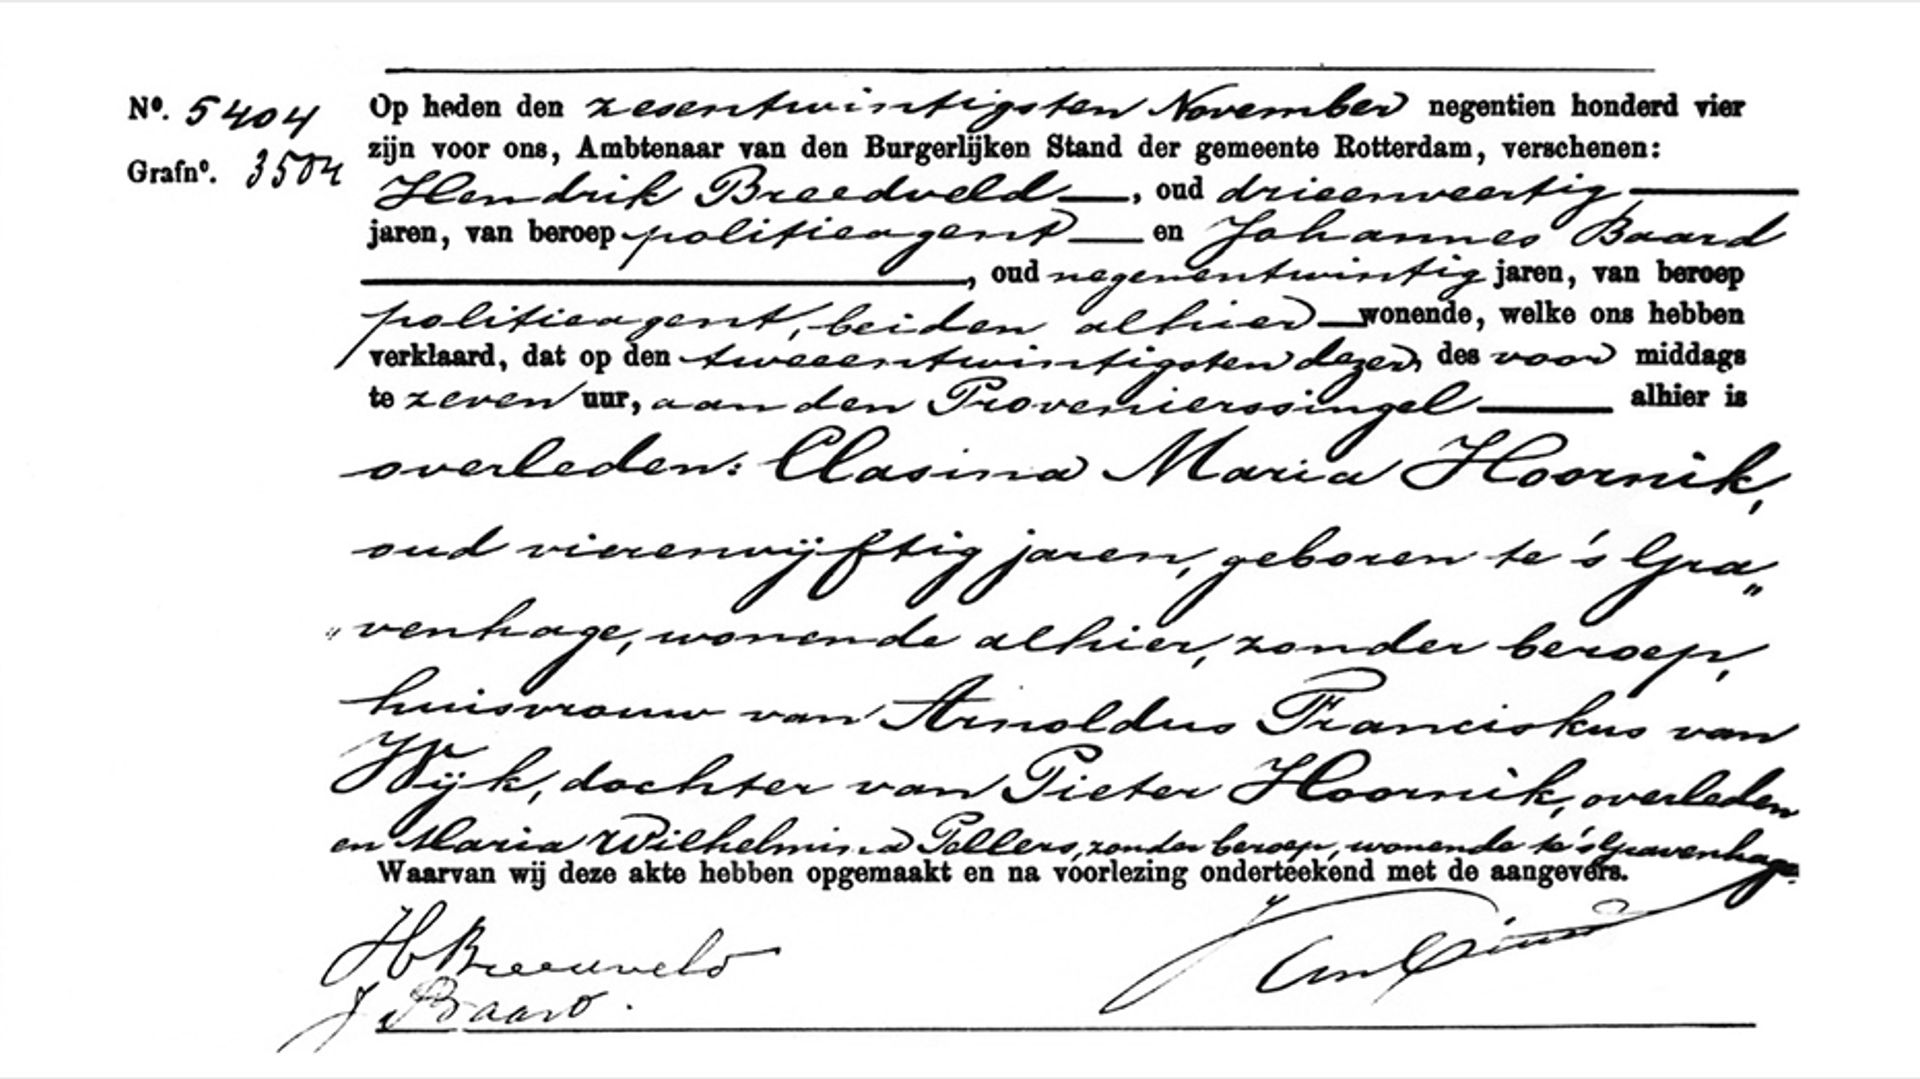 Nº. 5404
Grafnº. 3504
Op heden den zesentwintigsten November negentien honderd vier
zijn voor ons, Ambtenaar van den Burgerlijken Stand der gemeente Rotterdam, verschenen:
Hendrik Breedveld, oud drieenveertig
jaren, van beroep politieagent en Johannes Baard
, oud negenentwintig jaren, van beroep
politieagent, beiden alhier wonende, welke ons hebben
verklaard, dat op den tweeentwintigsten dezer, des voor middags
te zeven uur, aan den Provenierssingel alhier is
overleden: Clasina Maria Hoornik,
oud vierenvijftig jaren, geboren te 's Gra„
„venhage, wonende alhier, zonder beroep,
huisvrouw van Arnoldus Franciskus van
Wijk, dochter van Pieter Hoornik, overleden
en Maria Wilhelmina Pellers, zonder beroep, wonende te 's Gravenhage.
Waarvan wij deze akte hebben opgemaakt en na voorlezing onderteekend met de aangevers.
H Breedveld
J Baard.